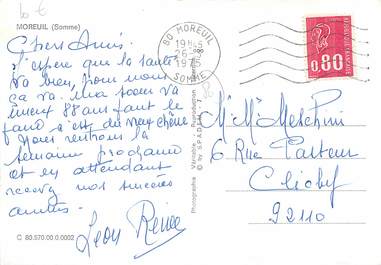 10 €
MOREUIL (Somme)
Chers Amis.
J'espère que la santé
va bien, pour nous
ça va. Ma soeur va
mieux 88 ans faut le
faire c'est du vieux chêne
Nous rentrons la
semaine prochaine
et en attendant
recevez nos sincères
amitiés
Leon Renée
C 80.570.00.0.0002
Photographie Véritable - Reproduction
© by S.P.A.D.E.M.
80 MOREUIL
19H45
26-9
1975
SOMME
0,80
M. Mme Meschini
6 Rue Pasteur
Clichy
92110